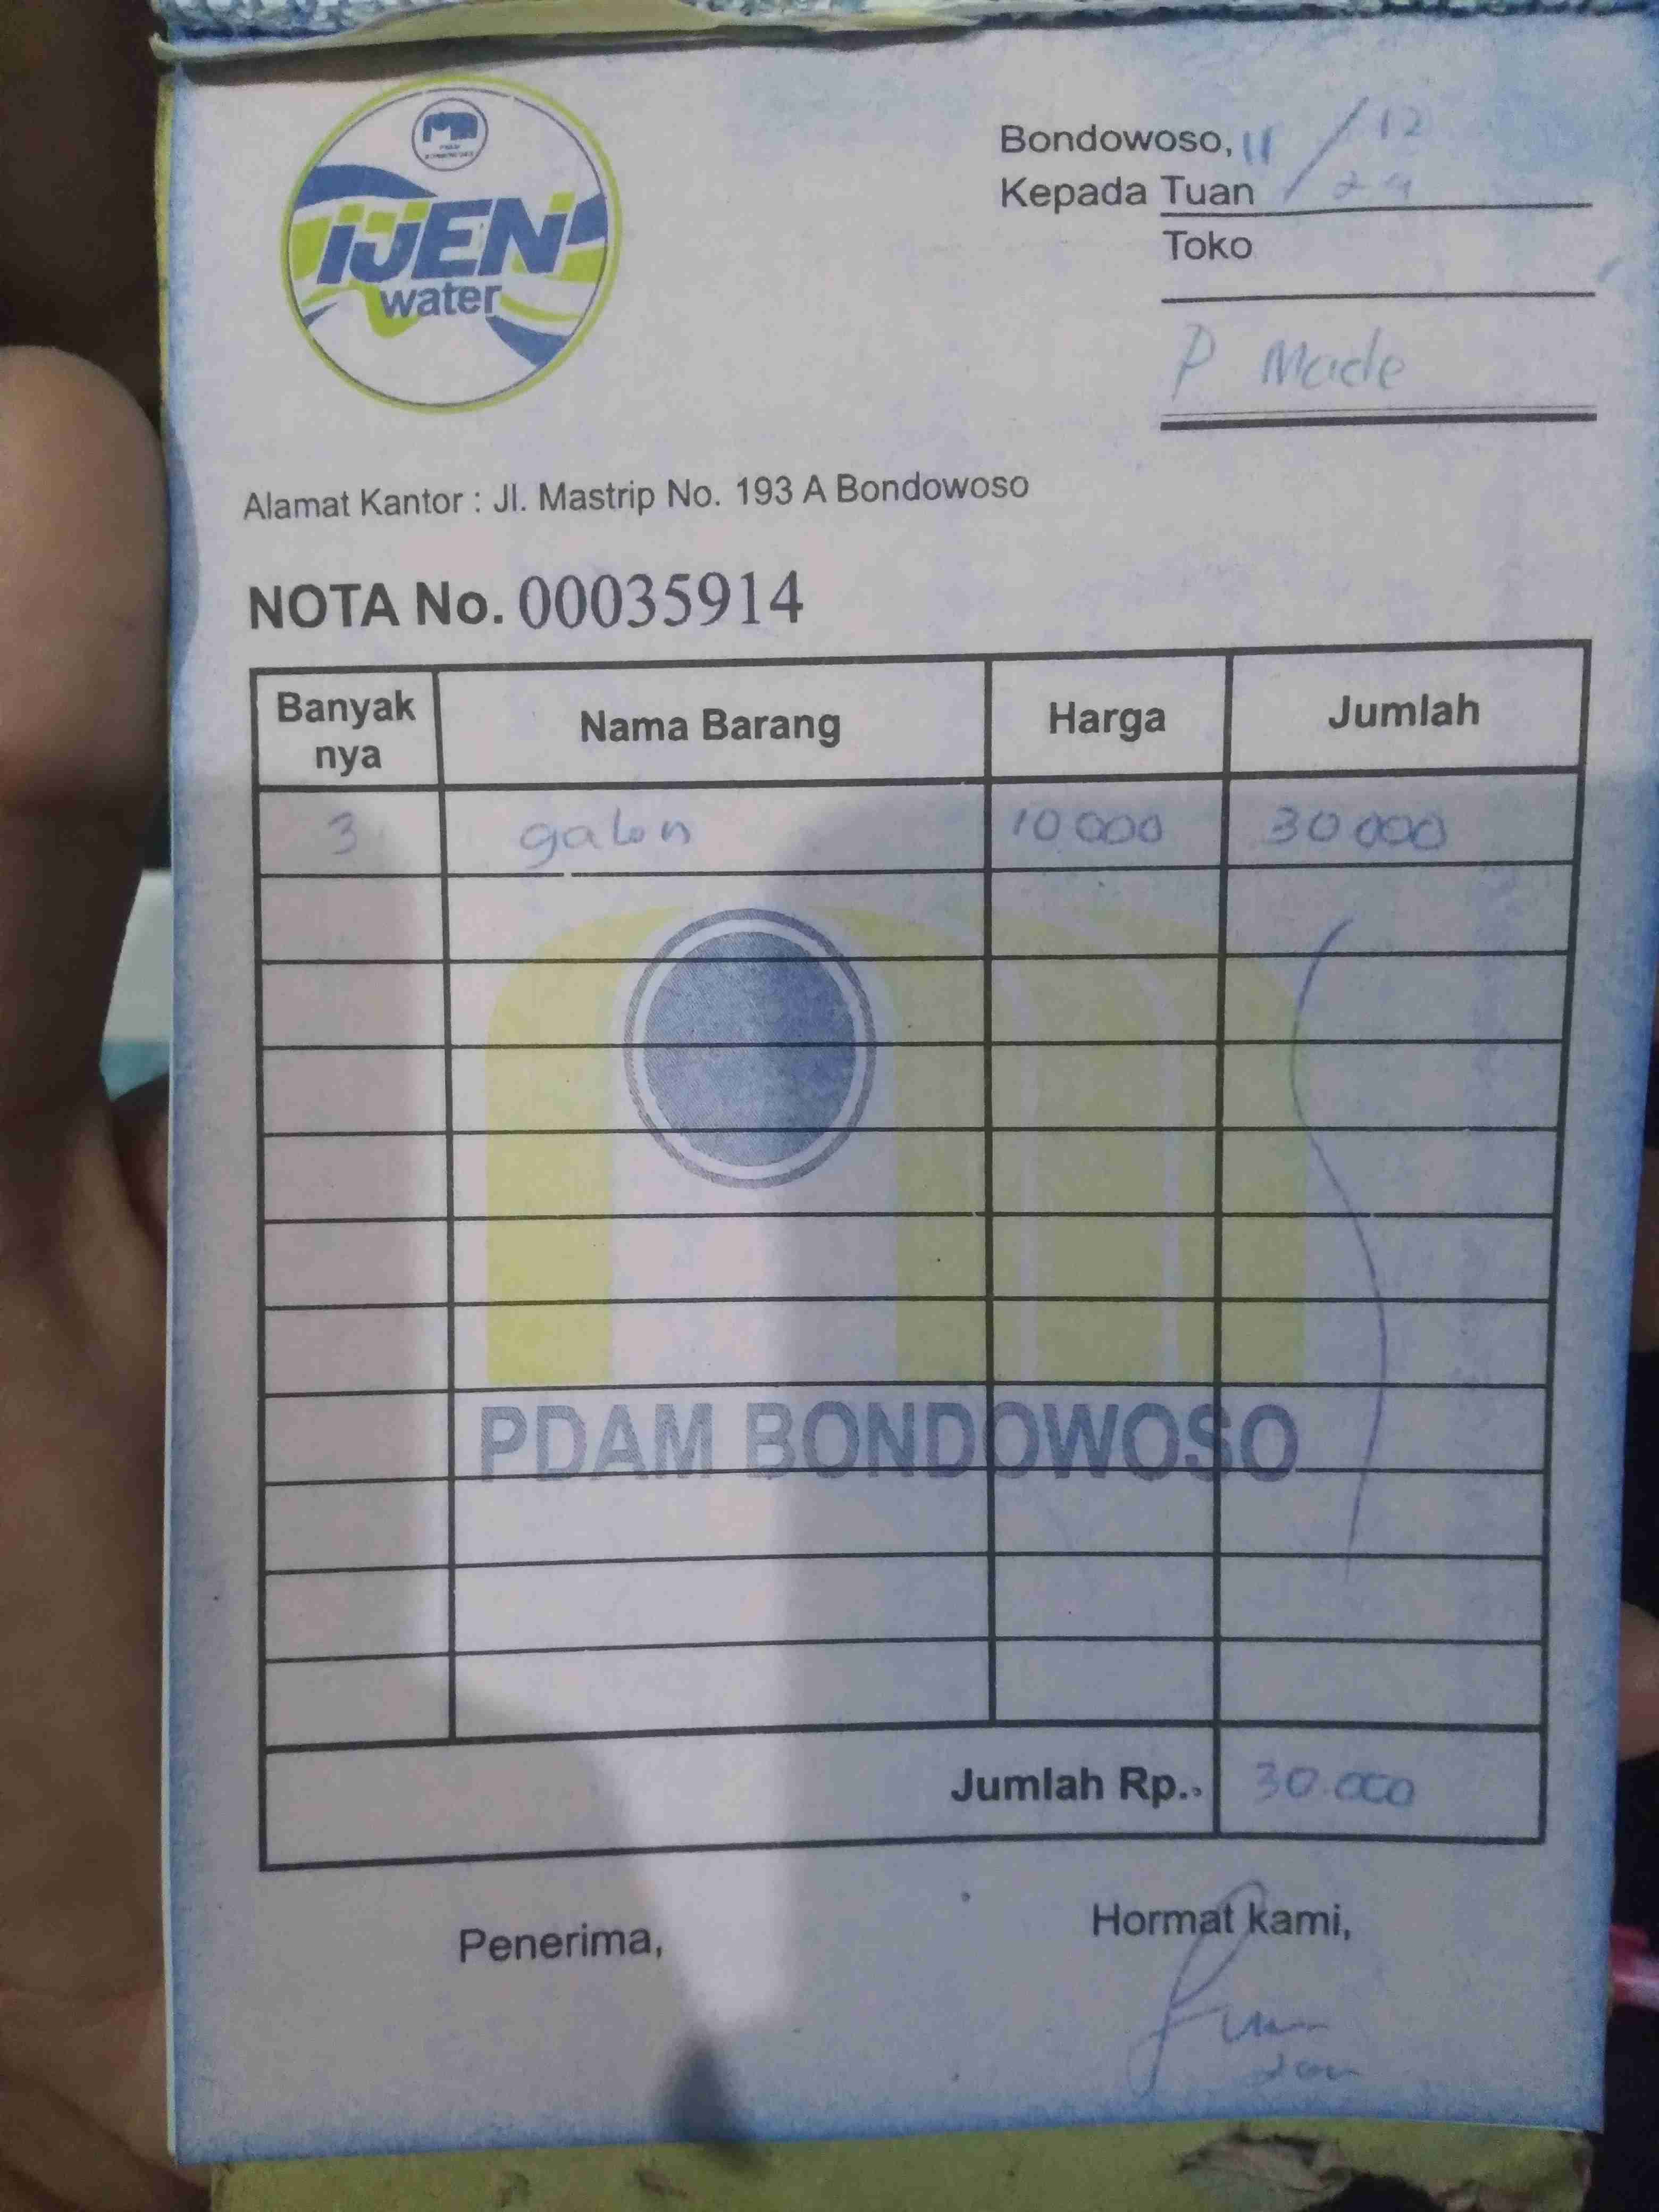 IJEN
water
Bondowoso, 11 / 12
24
Kepada Tuan
Toko
P Made
Alamat Kantor : Jl. Mastrip No. 193 A Bondowoso
NOTA No. 00035914
Banyak nya Nama Barang Harga Jumlah
3 galon 10 000 30 000
PDAM BONDOWOSO
Jumlah Rp.. 30.000
Penerima, Hormat kami,